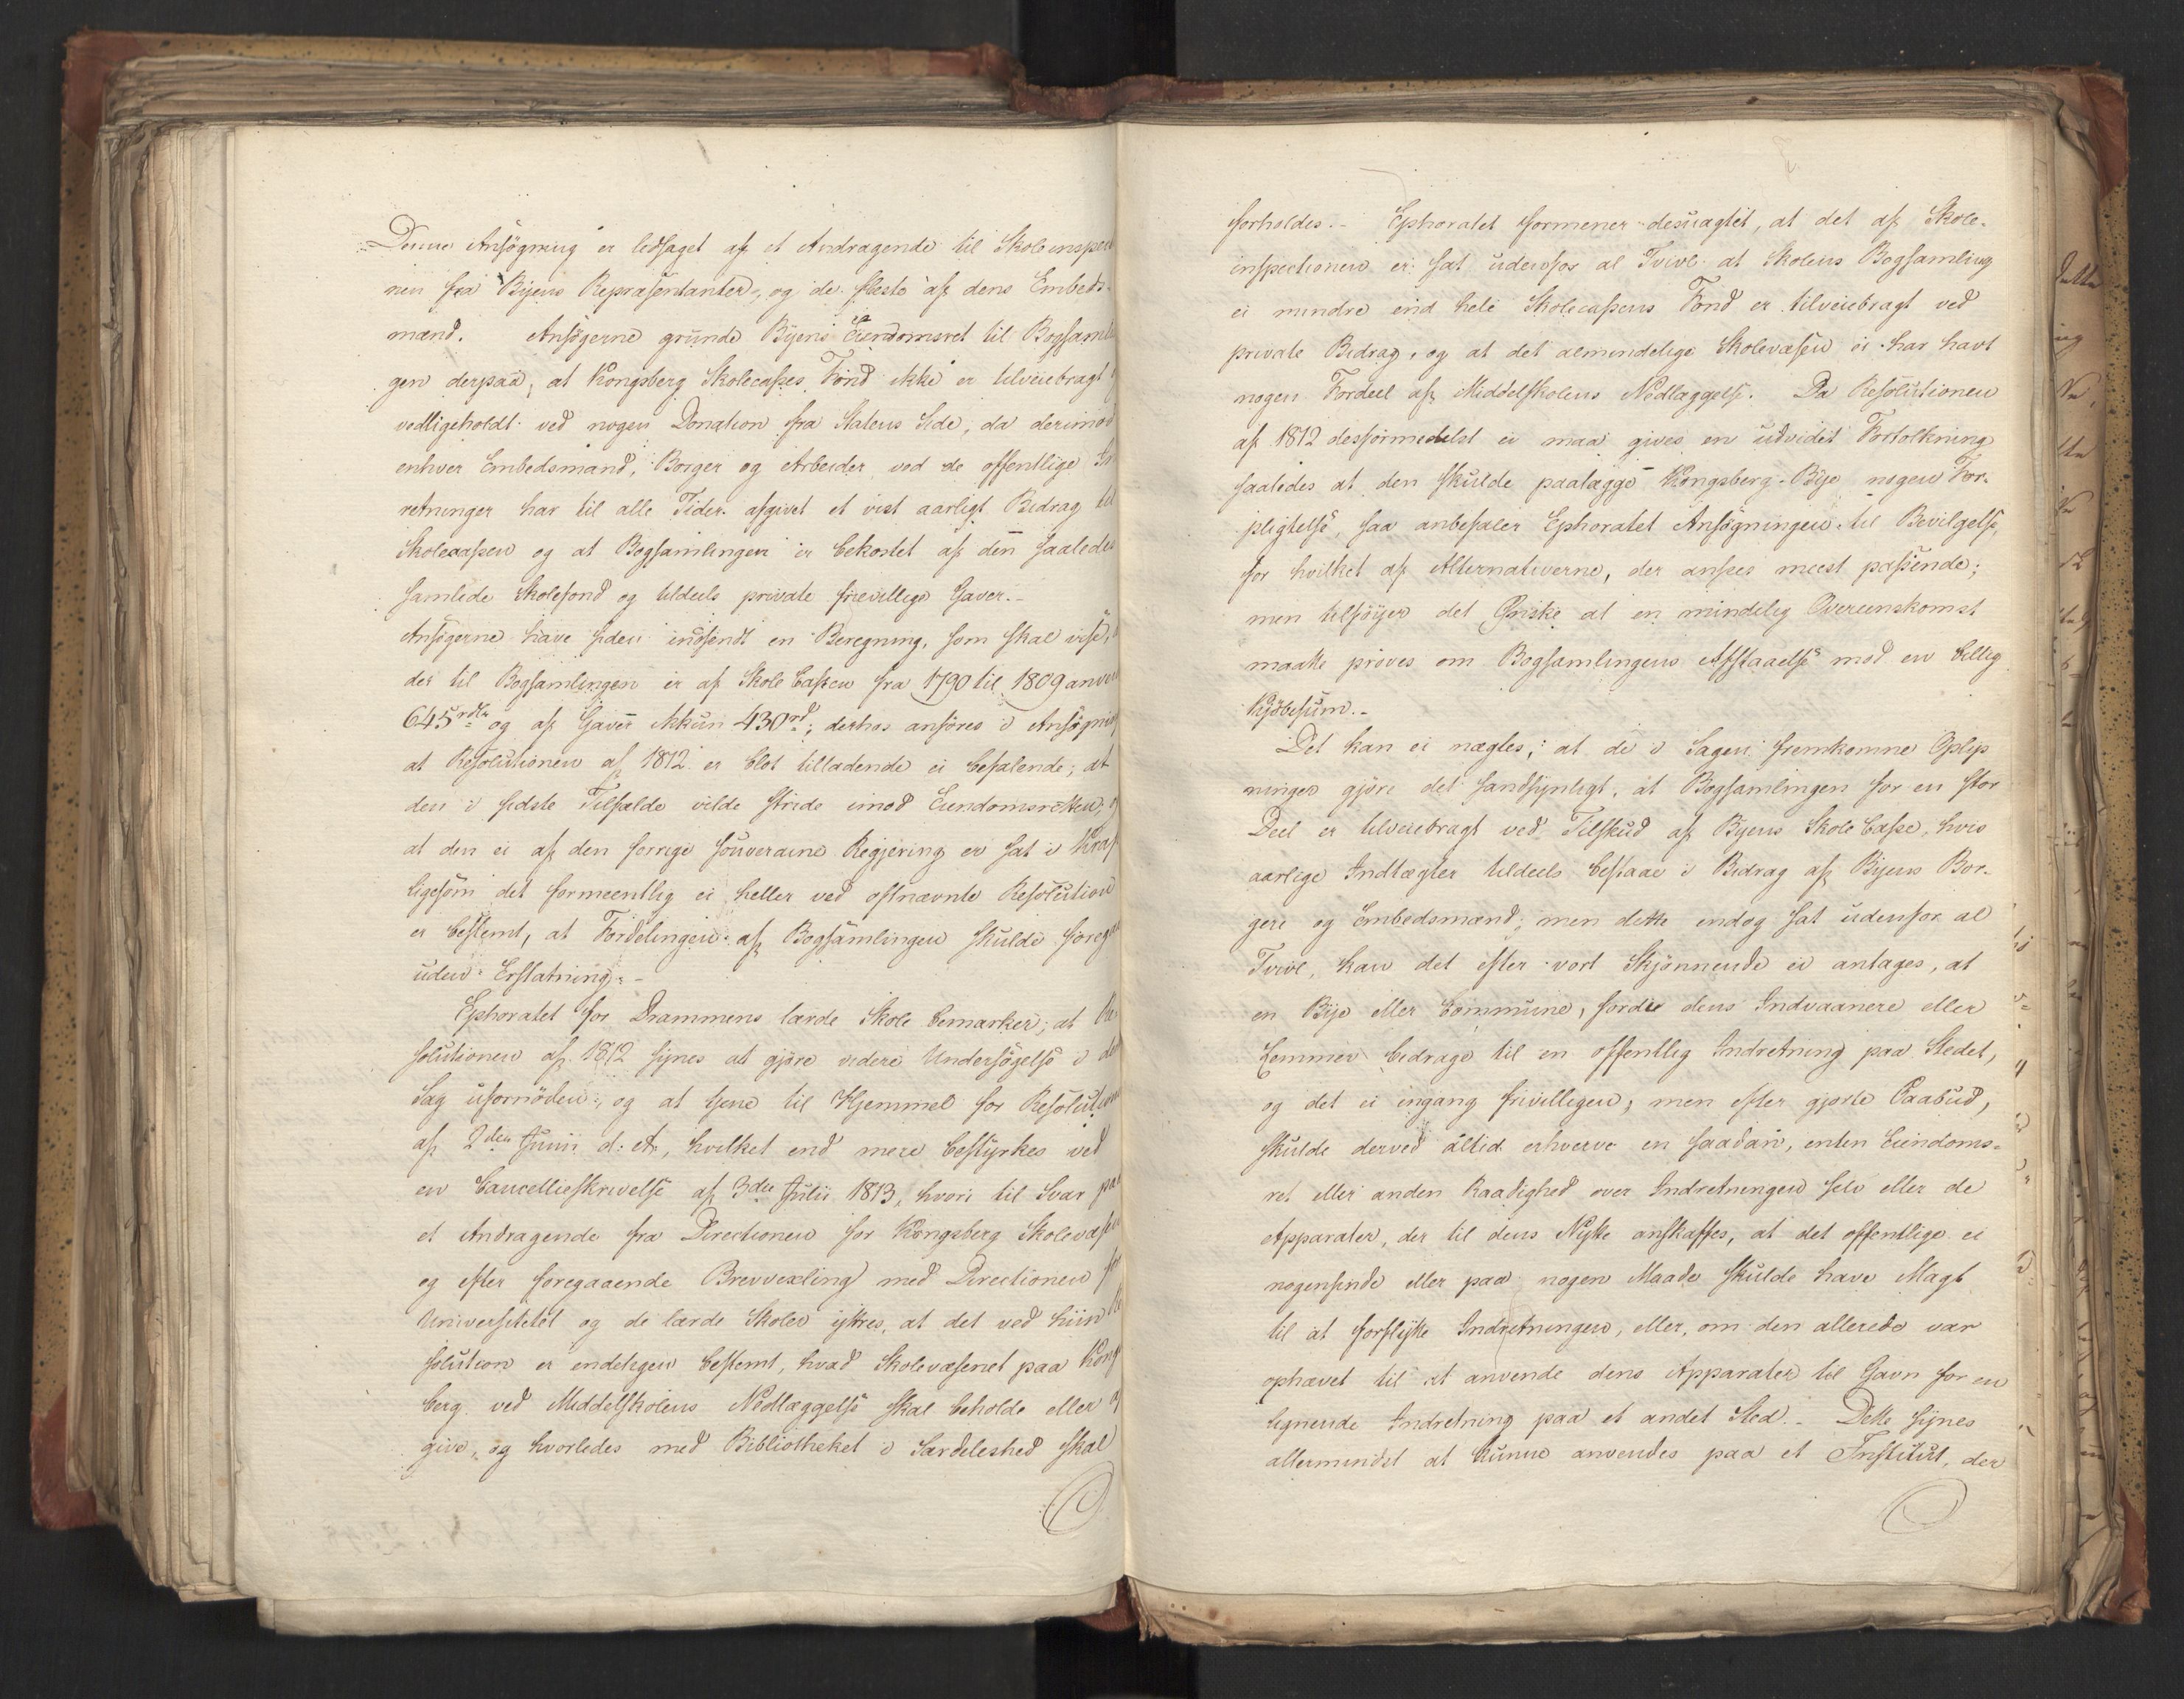 Denne Ansøgning er ledsaget af et Andragende til Skoleinspec
nen fra Byens Repræsentanter, og de fleste af dens Embeds-
mænd. Ansøgerne grunde Byens Eiendomsret til Bogsaml
gen derpaa, at Kongsberg Skolecasses Fond ikke er tilveiebragt
vedligeholdt ved nogen Donation fra Statens Side, da derimod
enhver Embedsmand, Borger og Arbeider ved de offentlige In
retninger har til alle Tider afgivet et vist aarligt Bidrag til
Skolecassen og at Bogsamlingen er bekostet af den saaledes
samlede Skolefond og tildeels private frievillige Gaver.-
Ansøgerne have siden indsendt en Beregning, som skal vise,
der til Bogsamlingen er af Skole Cassen fra 1790 til 1809 anven
645 rdlr og af Gaver ikkun 430 rd; derhos anføres i Ansøgning
at Resolutionen af 1812 er blot tilladende ei befalende; at
den i sidste Tilfælde vilde stride imod Eiendomsretten; o
at den ei af den forrige souveraine Regjering er sat i Kraf
ligesom det formeentlig ei heller ved oftnævnte Resolution
er bestemt, at Fordelingen af Bogsamlingen skulde foregaa
uden Erstatning.-
Ephoratet for Drammens lærde Skole bemærker; at Re-
solutionen af 1812 synes at gjøre videre Undersøgelse i den
Sag ufornøden, og at tjene til Hjemmel for Resolutionen
af 2den Junii d: A:, hvilket end mere bestyrkes ved
en Cancellieskrivelse af 3die Julii 1813, hvori til Svar paa
et Andragende fra Directionen for Kongsberg Skolevæsen
og efter foregaaende Brevvexling med Directionen for
Universitetet og de lærde Skoler yttres, at det ved hiin Re
solution er endeligen bestemt, hvad Skolevæsenet paa Kongs
berg ved Middelskolens Nedlæggelse skal beholde eller af
give, og hvorledes med Bibliotheket i Særdeleshed skal
forholdes.- Ephoratet formener desuagtet, at det af Skole-
inspectionen er sat udenfor al Tvivl at Skolens Bogsamling
ei mindre end hele Skolecassens Fond er tilveiebragt ved
private Bidrag, og at det almindelige Skolevæsen ei har havt
nogen Fordeel af Middelskolens Nedlæggelse. Da Resolutionen
af 1812 desformedelst ei maa gives en udvidet Fortolkning
saaledes at den skulde paalægge Kongsberg Bye nogen For-
pligtelse, saa anbefaler Ephoratet Ansøgningen til Bevilgelse,
for hvilket af Alternativerne, der ansees meest passende;
men tilføyer det Ønske at en mindelig Overeenskomst
maatte prøves om Bogsamlingens Afstaaelse mod en billig
Kjøbesum.-
Det kan ei nægtes, at de i Sagen fremkomne Oplys
ninger gjøre det sandsynligt, at Bogsamlingen for en stor
Deel er tilveiebragt ved Tilskud af Byens Skole Casse, hvis
aarlige Indtægter tildeels bestaae i Bidrag af Byens Bor-
gere og Embedsmænd; men dette endog sat udenfor al
Tvivl, kan det efter vort Skjønnende ei antages, at
en Bye eller Commune, fordie dens Indvaanere eller
Lemmer bedrage til en offentlig Indretning paa Stedet,
og det ei engang frivilligen, men efter gjorte Paabud,
skulde derved altid erhverve en saadan, enten Eiendoms-
ret eller anden Raadighed over Indretningen selv eller de
Apparater, der til dens Nytte anskaffes, at det offentlige ei
nogensinde eller paa nogen Maade skulde have Magt
til at forflytte Indretningen, eller, om den allerede var
ophævet til at anvende dens Apparater til Gavn for en
lignende Indretning paa et andet Sted.- Dette synes
allermindst at kunne anvendes paa et Institut, der